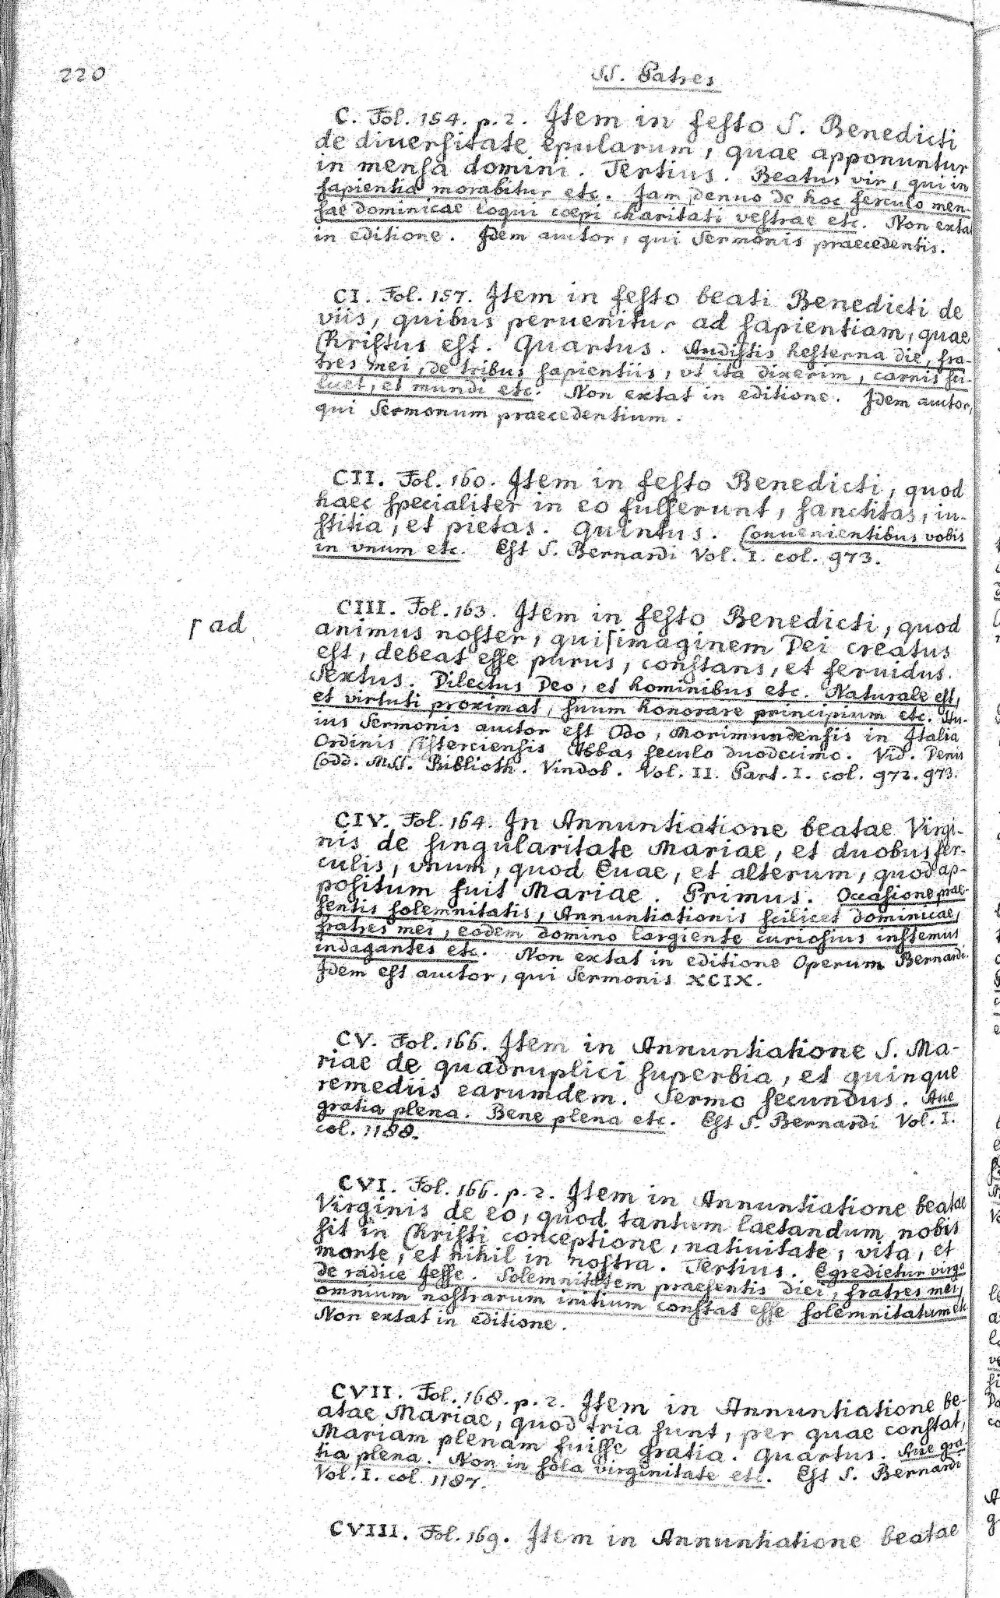 220
SS. Patres
C. Fol. 154. p. 2. Item in festo S. Benedicti
de diuersitate epularum, quae apponuntur
in mensa domini. Tertius. Beatus vir, qui in
sapientia morabitur etc. Jam denuo de hoc ferculo men-
sae dominicae loqui coepi charitati vestrae etc. Non exta
in editione. Idem auctor, qui Sermonis praecedentis.
CI. Fol. 157. Item in festo beati Benedicti de
viis, quibus peruenitur ad sapientiam, quae
Christus est. Quartus. Audistis hesterna die, fra-
tres mei, de tribus sapientiis, vt ita dixerim, carnis sci-
licet, et mundi etc. Non extat in editione. Idem auctor,
qui Sermonum praecedentium.
CII. Fol. 160. Item in festo Benedicti, quod
haec specialiter in eo fulserunt, sanctitas, iu-
stitia, et pietas. Quintus. Conuenientibus vobis
in vnum etc. Est S. Bernardi Vol. I. col. 973.
CIII. Fol. 163. Item in festo Benedicti, quod
ſ ad
animus noster, qui ſ imaginem Dei creatus
est, debeat esse purus, constans, et feruidus.
Sextus. Dilectus Deo, et hominibus etc. Naturale est,
et virtuti proximat, suum honorare principium etc. Hu-
ius Sermonis auctor est Odo, Morimundensis in Italia
Ordinis Cisterciensis Abbas seculo duodecimo. Vid. Denis
Codd. MSS. Biblioth. Vindob. Vol. II. Part. I. col. 972. 973.
CIV. Fol. 164. In Annuntiatione beatae Virgi-
nis de singularitate Mariae, et duobus fer-
culis, vnum, quod Euae, et alterum, quod ap-
positum fuit Mariae. Primus. Occasione prae-
sentis solemnitatis, Annuntiationis scilicet dominicae,
fratres mei, eodem domino largiente curiosius instemus
indagantes etc. Non extat in editione Operum Bernardi.
Idem est auctor, qui Sermonis XCIX.
CV. Fol. 166. Item in Annuntiatione S. Ma-
riae de quadruplici superbia, et quinque
remediis earumdem. Sermo secundus. Aue
gratia plena. Bene plena etc. Est S. Bernardi Vol. I.
col. 1188.
CVI. Fol. 166. p. 2. Item in Annuntiatione beatae
Virginis de eo, quod tantum laetandum nobis
sit in Christi conceptione, natiuitate, vita, et
morte, et nihil in nostra. Tertius. Egredietur virga
de radice Jesse. Solemnitatem praesentis diei, fratres mei,
omnium nostrarum initium constat esse solemnitatum etc
Non extat in editione.
CVII. Fol. 168. p. 2. Item in Annuntiatione be-
atae Mariae, quod tria sunt, per quae constat,
Mariam plenam fuisse gratia. Quartus. Aue gra-
tia plena. Non in sola virginitate etc. Est S. Bernardi
Vol. I. col. 1187.
CVIII. Fol. 169. Item in Annuntiatione beatae